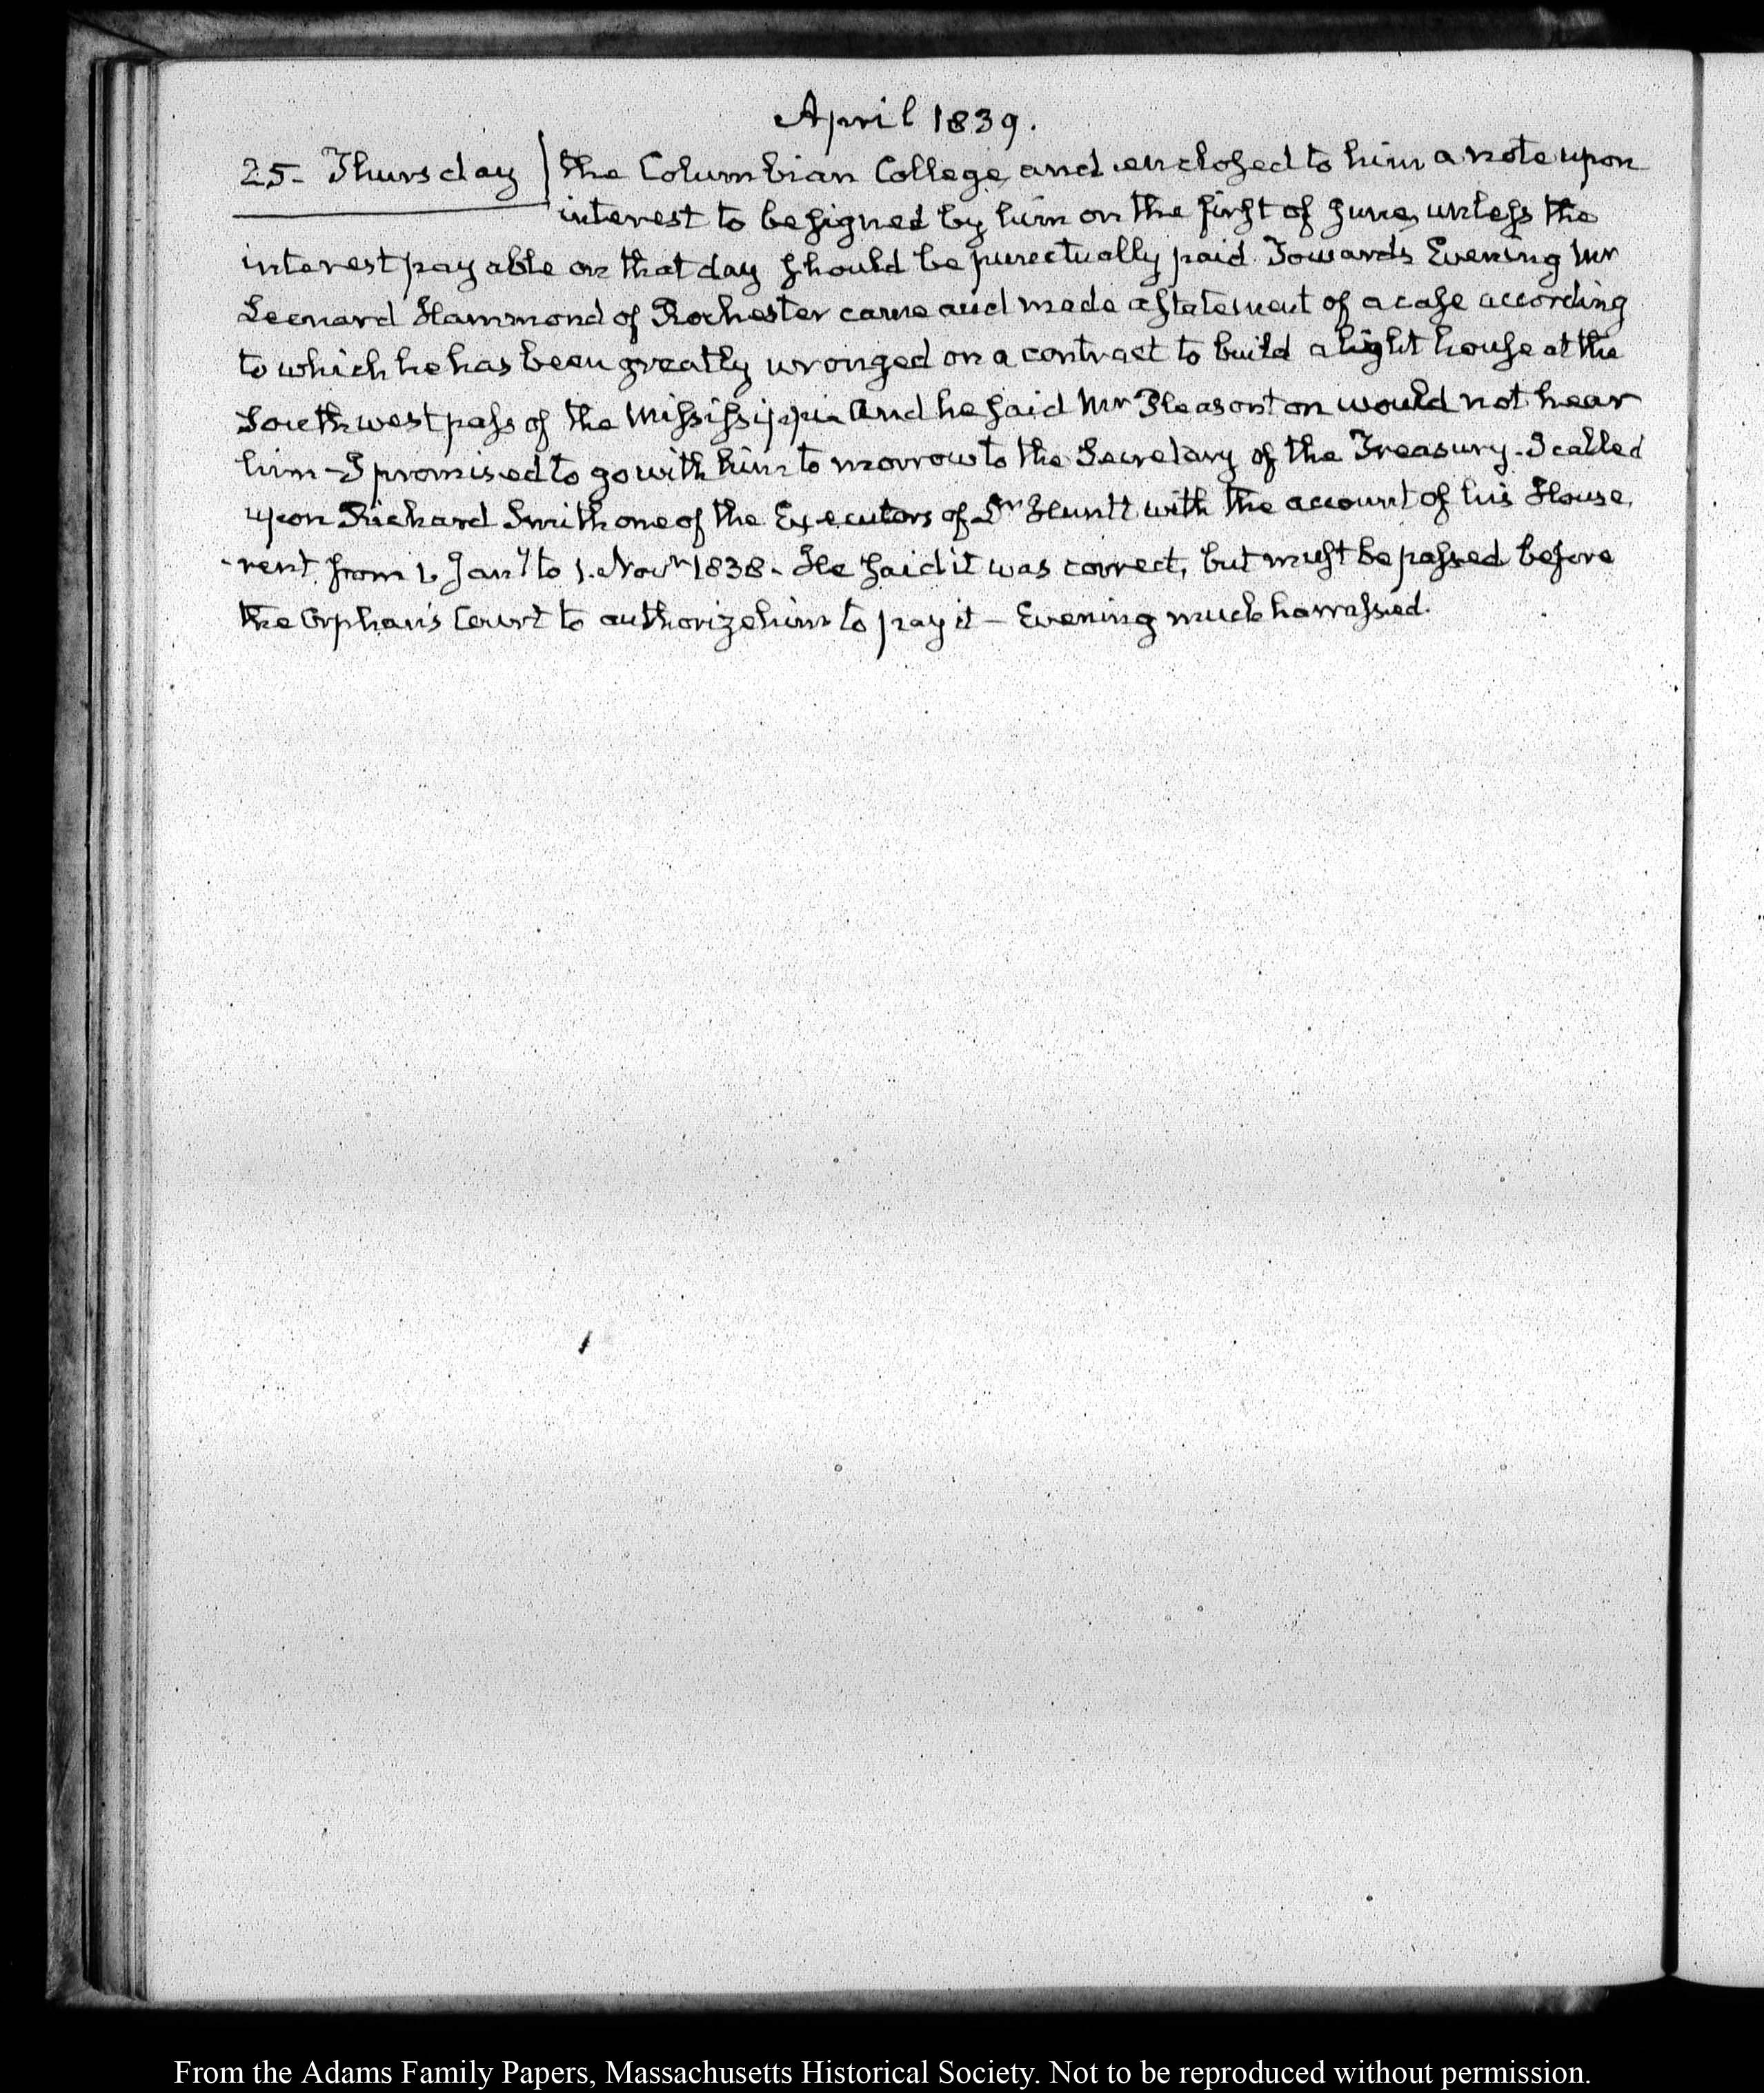 April 1839.
25. Thursday the Columbian College, and enclosed to him a note upon
interest to be signed by him on the first of June, unless the
interest payable on that day should be punctually paid. Towards Evening Mr
Leonard Hammond of Rochester came and made a statement of a case according
to which he has been greatly wronged on a contract to build a light house at the
South west pass of the Mississippi. And he said Mr Pleasonton would not hear
him – I promised to go with him to morrow to the Secretary of the Treasury. I called
upon Richard Smith one of the Executors of Dr Huntt with the account of his House,
rent, from 1. Jany to 1. Novr 1838. He said it was correct, but must be passed before
the Orphan's Court to authorize him to pay it – Evening much harrassed.
From the Adams Family Papers, Massachusetts Historical Society. Not to be reproduced without permission.